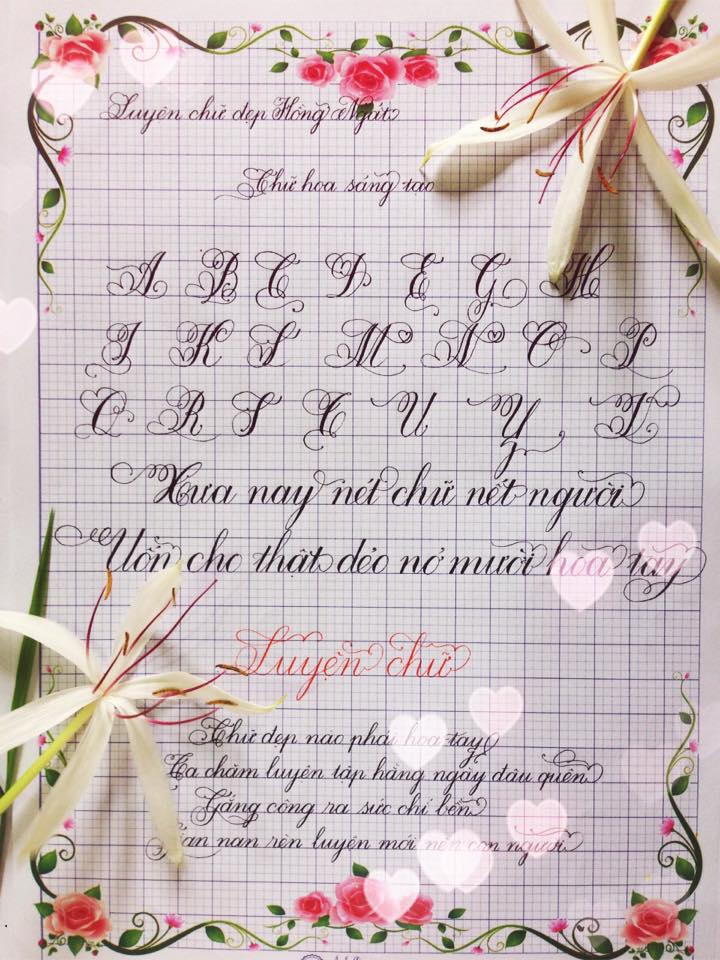 Luyện chữ đẹp Hồng Ngát
Chữ hoa sáng tạo
A B C D E G H
I K S M N O P
Q R S T U Y V
Xưa nay nét chữ nết người
Uốn cho thật dẻo nở mười hoa tay
Luyện chữ
Chữ đẹp nào phải hoa tay
Ta chăm luyện tập hằng ngày đâu quên
Gắng công ra sức chí bền
Gian nan rèn luyện mới nên con người